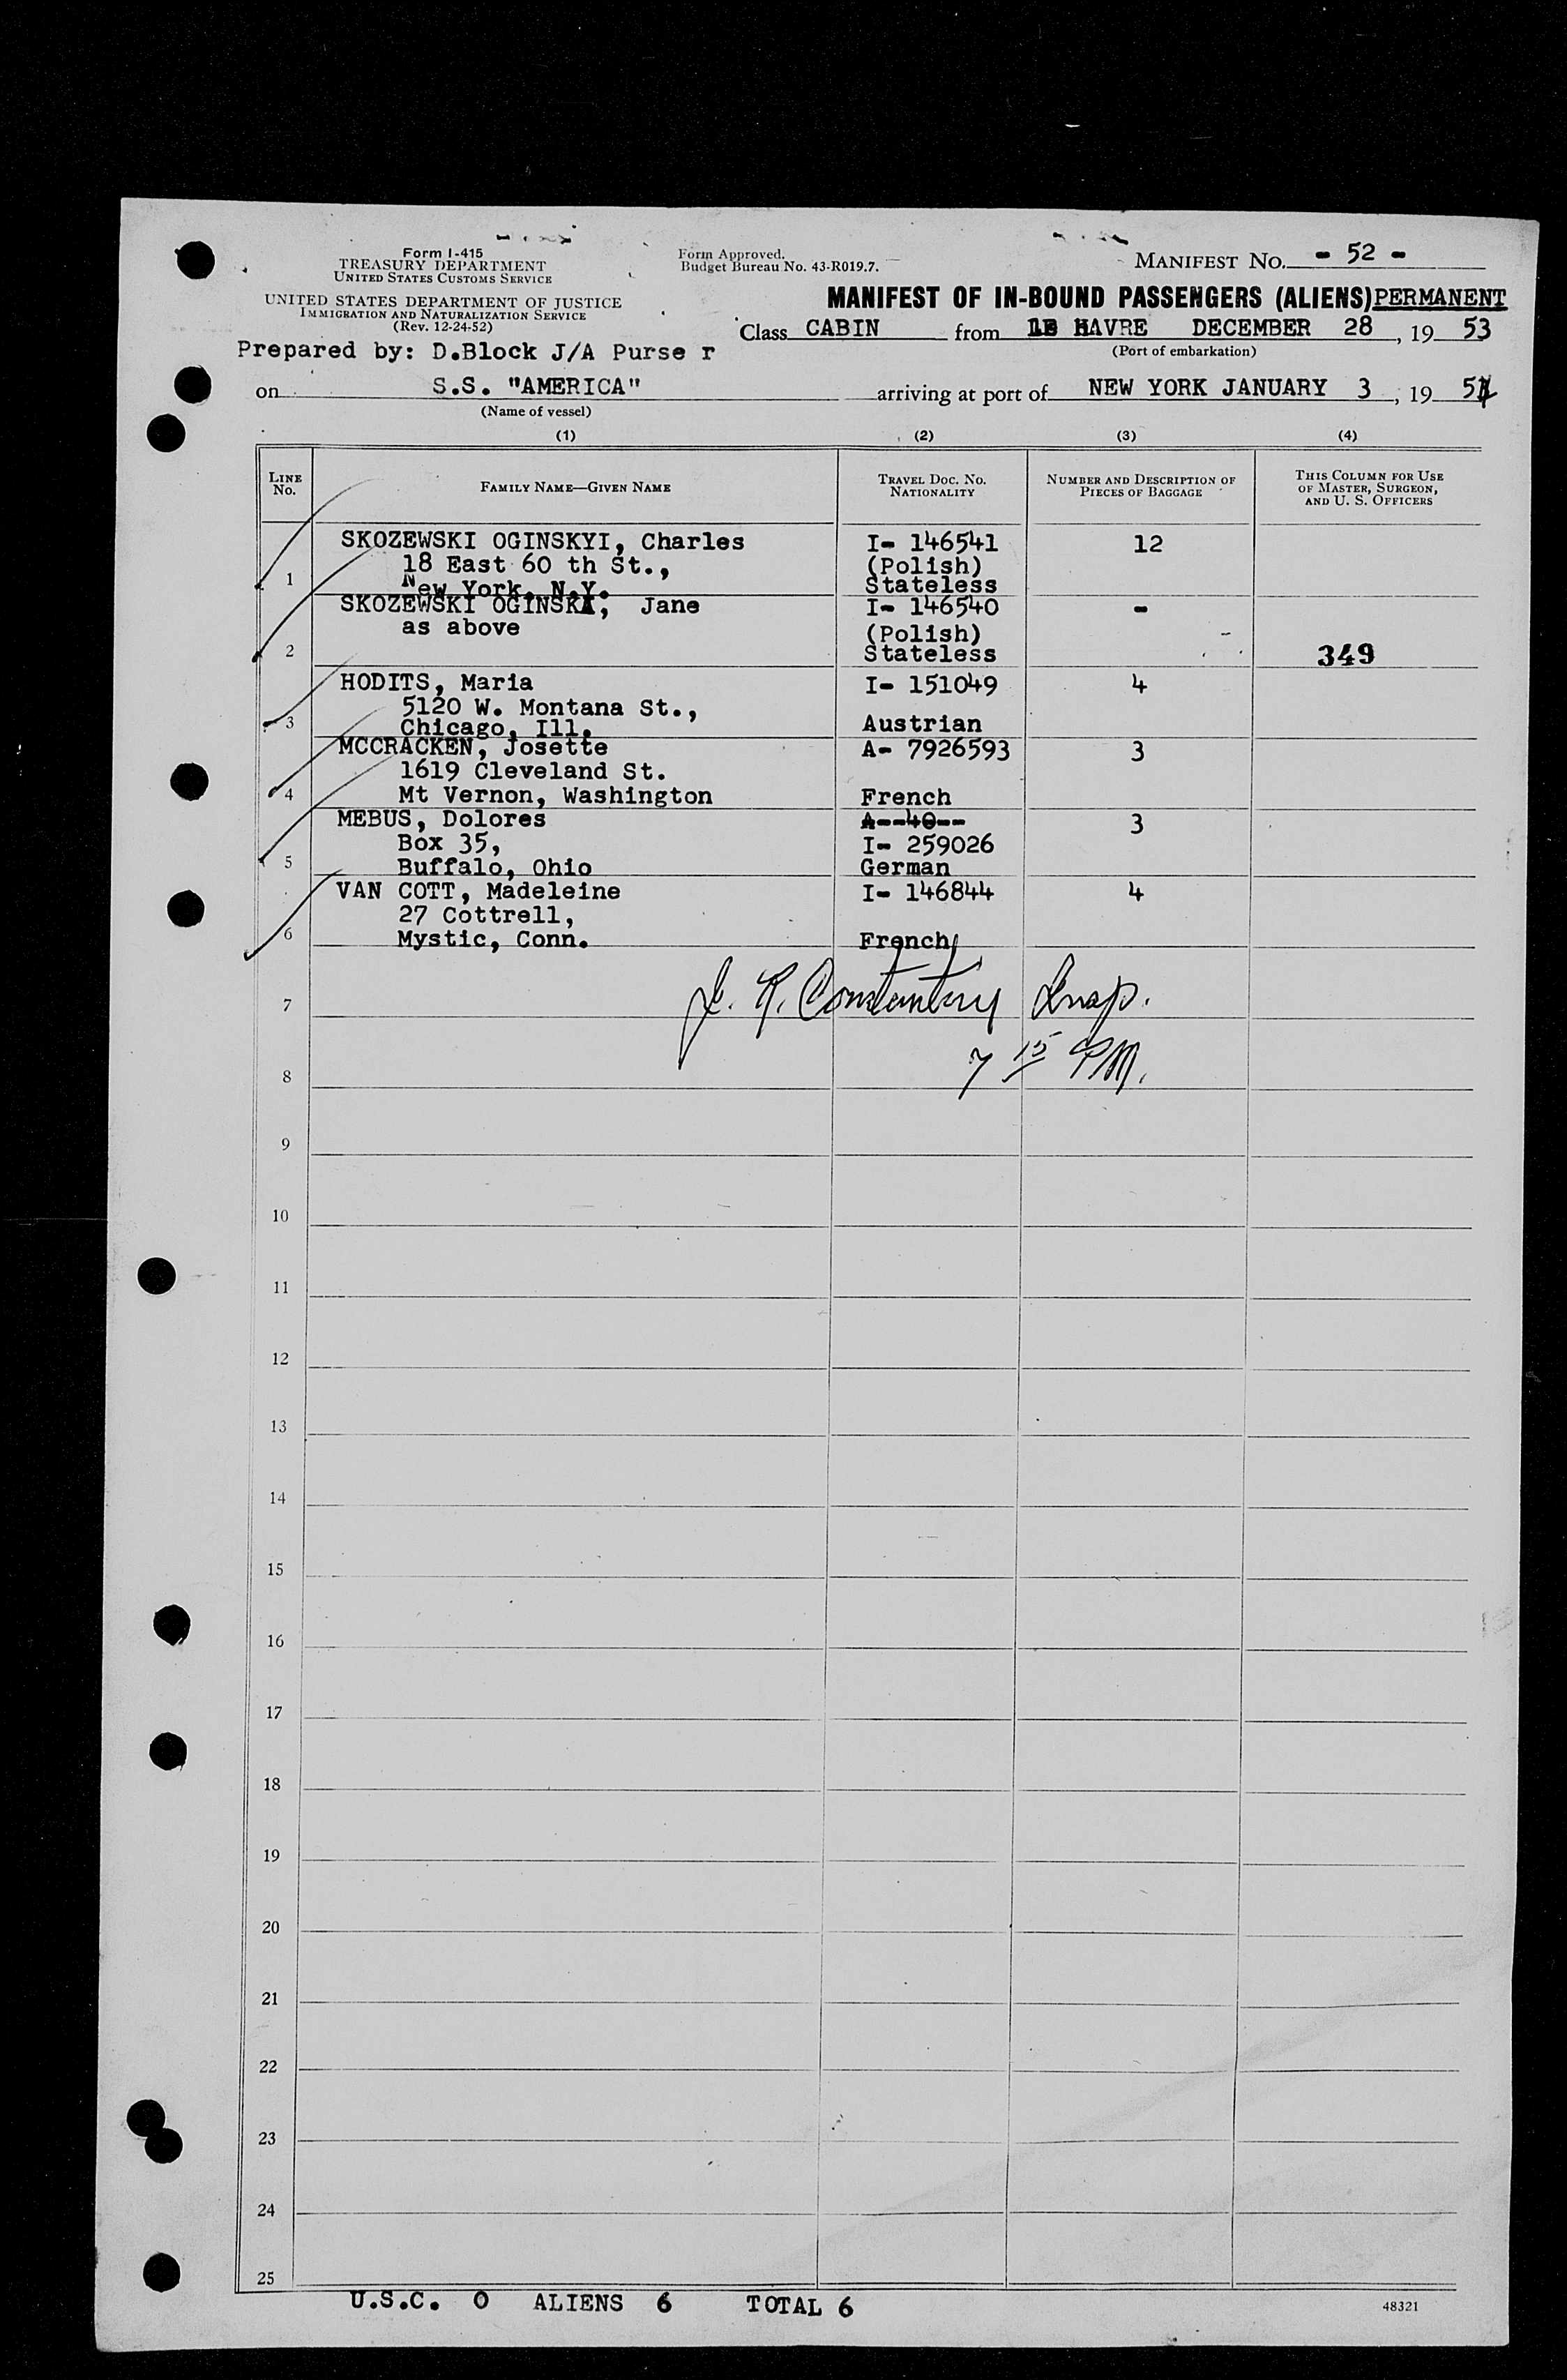 Form I-415
TREASURY DEPARTMENT
UNITED STATES CUSTOMS SERVICE
UNITED STATES DEPARTMENT OF JUSTICE
IMMIGRATION AND NATURALIZATION SERVICE
(Rev. 12-24-52)
Form Approved.
Budget Bureau No. 43-R019.7.
MANIFEST NO. - 52 -
MANIFEST OF IN-BOUND PASSENGERS (ALIENS) PERMANENT
Class CABIN from LE HAVRE DECEMBER 28, 19 53
(Port of embarkation)
Prepared by: D.Block J/A Purse r
on S.S. "AMERICA" arriving at port of NEW YORK JANUARY 3, 19 54
(Name of vessel)
(1) (2) (3) (4)
LINE NO. FAMILY NAME—GIVEN NAME TRAVEL DOC. NO. NATIONALITY NUMBER AND DESCRIPTION OF PIECES OF BAGGAGE THIS COLUMN FOR USE OF MASTER, SURGEON, AND U. S. OFFICERS
SKOZEWSKI OGINSKYI, Charles I- 146541 12
18 East 60 th St., (Polish)
1 New York, N.Y. Stateless
SKOZEWSKI OGINSKA, Jane I- 146540 -
as above (Polish)
2 Stateless 349
HODITS, Maria I- 151049 4
5120 W. Montana St.,
3 Chicago, Ill. Austrian
MCCRACKEN, Josette A- 7926593 3
1619 Cleveland St.
4 Mt Vernon, Washington French
MEBUS, Dolores A--40-- 3
Box 35, I- 259026
5 Buffalo, Ohio German
VAN COTT, Madeleine I- 146844 4
27 Cottrell,
6 Mystic, Conn. French
7 J. R. Insp.
8 7 15 PM.
9
10
11
12
13
14
15
16
17
18
19
20
21
22
23
24
25
U.S.C. 0 ALIENS 6 TOTAL 6
48321